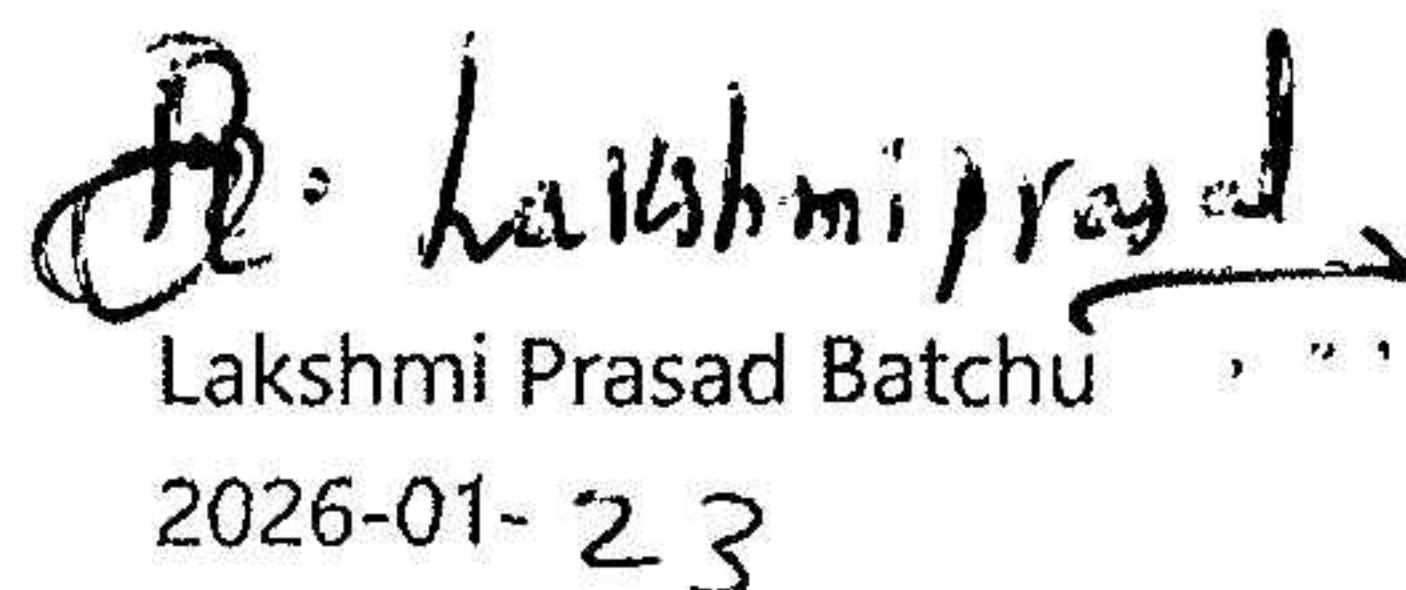 B. Lakshmiprasad
Lakshmi Prasad Batchu
2026-01-23